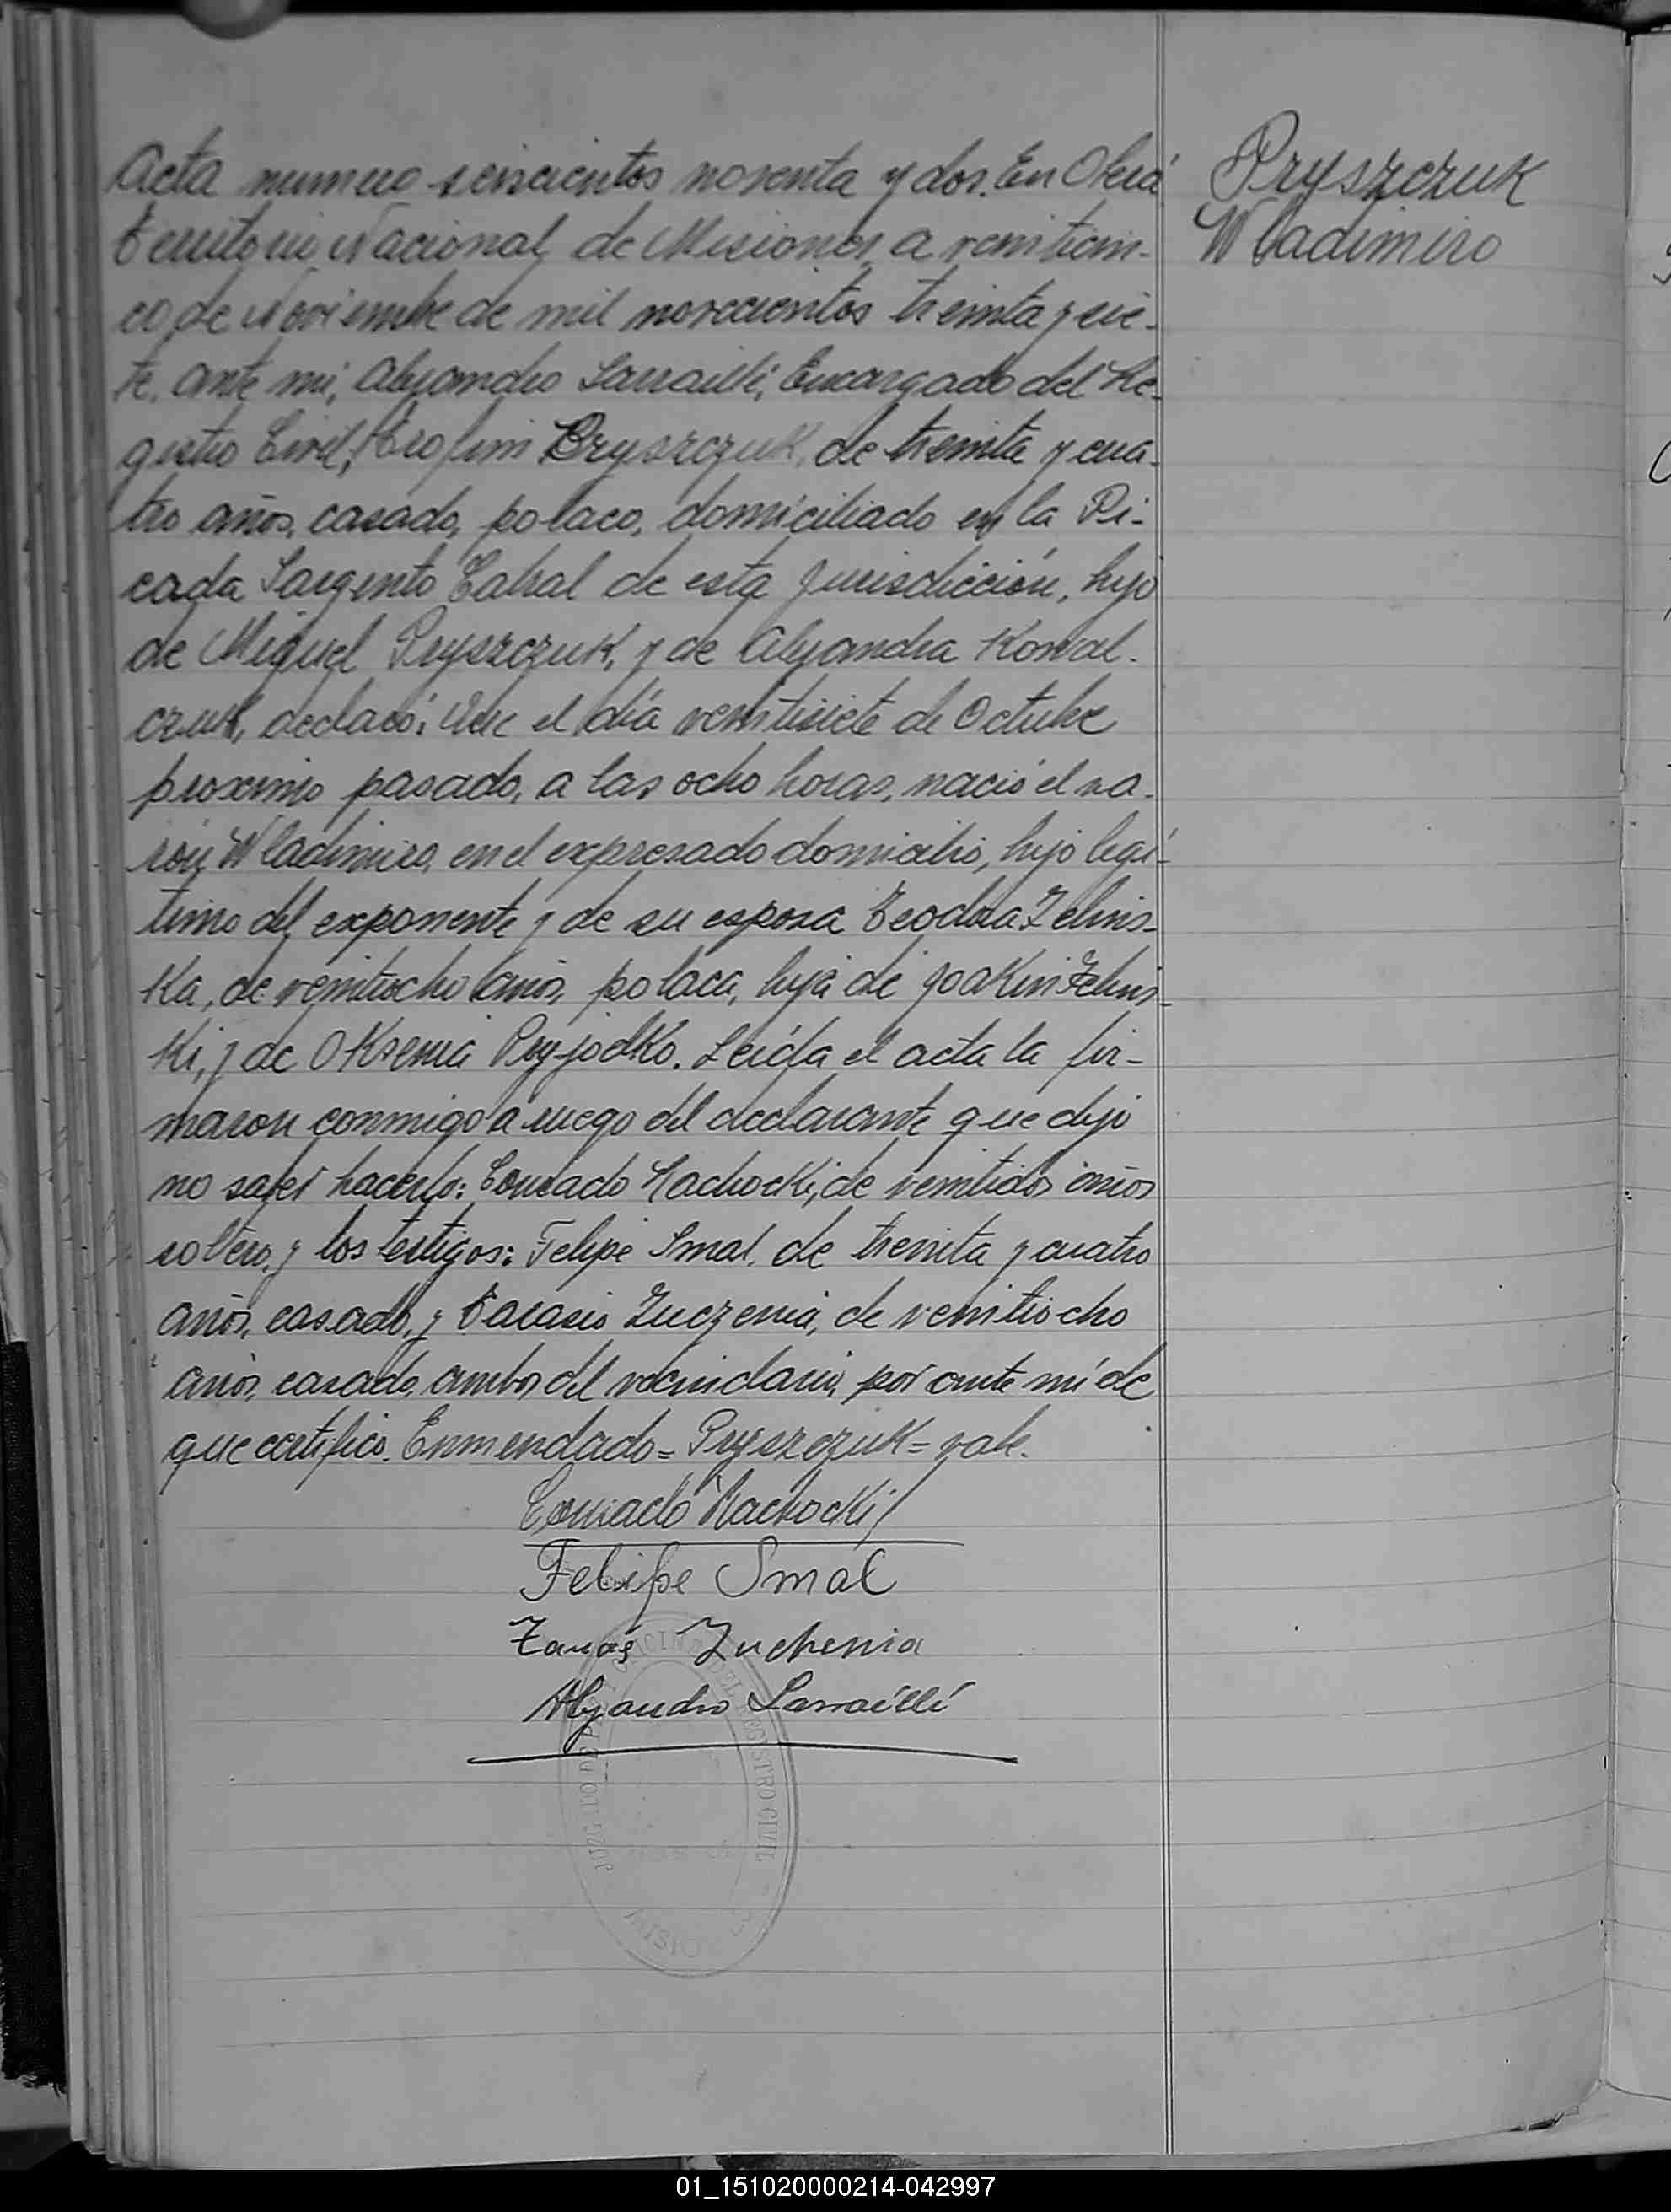 Pryszczuk
Wladimiro
Acta numero seiscientos noventa y dos. En Oberá
Territorio Nacional de Misiones, a veinticin-
co de Noviembre de mil novecientos treinta y sie-
te. ante mi, Alejandro Sarrailli, Encargado del Re-
gistro Civil, Pryszczuk, de treinta y cua-
tro años, casado, polaco, domiciliado en la Pi-
cada Sargento Cabral de esta jurisdicción, hijo
de Miguel Pryszczuk, y de Alejandra Kowal-
czuk, declaró: Que el día veintisiete de Octubre
proximo pasado, a las ocho horas, nació el va-
rón Wladimiro, en el expresado domicilio, hijo legí-
timo del exponente y de su esposa Teodora Zelins-
Ka, de veintiocho años, polaca, hija de Joakin Zelins-
Ki, y de Oksenia Pryjodko. Leída el acta la fir-
maron conmigo a ruego del declarante que dijo
no saber hacerlo: Conrado Machocki, de veintidos años
soltero, y los testigos: Felipe Smal, de treinta y cuatro
años, casado, y Tarasio Zuczenia, de veintiocho
años, casado, ambos del vecindario, por ante mí de
que certifico. Enmendado = Pryszczuk = vale.
Conrado Machocki
Felipe Smal
Taras Zuchenia
Alejandro Sarrailli
JUZGADO DE PAZ OFICINA DEL REGISTRO CIVIL
01_151020000214-042997